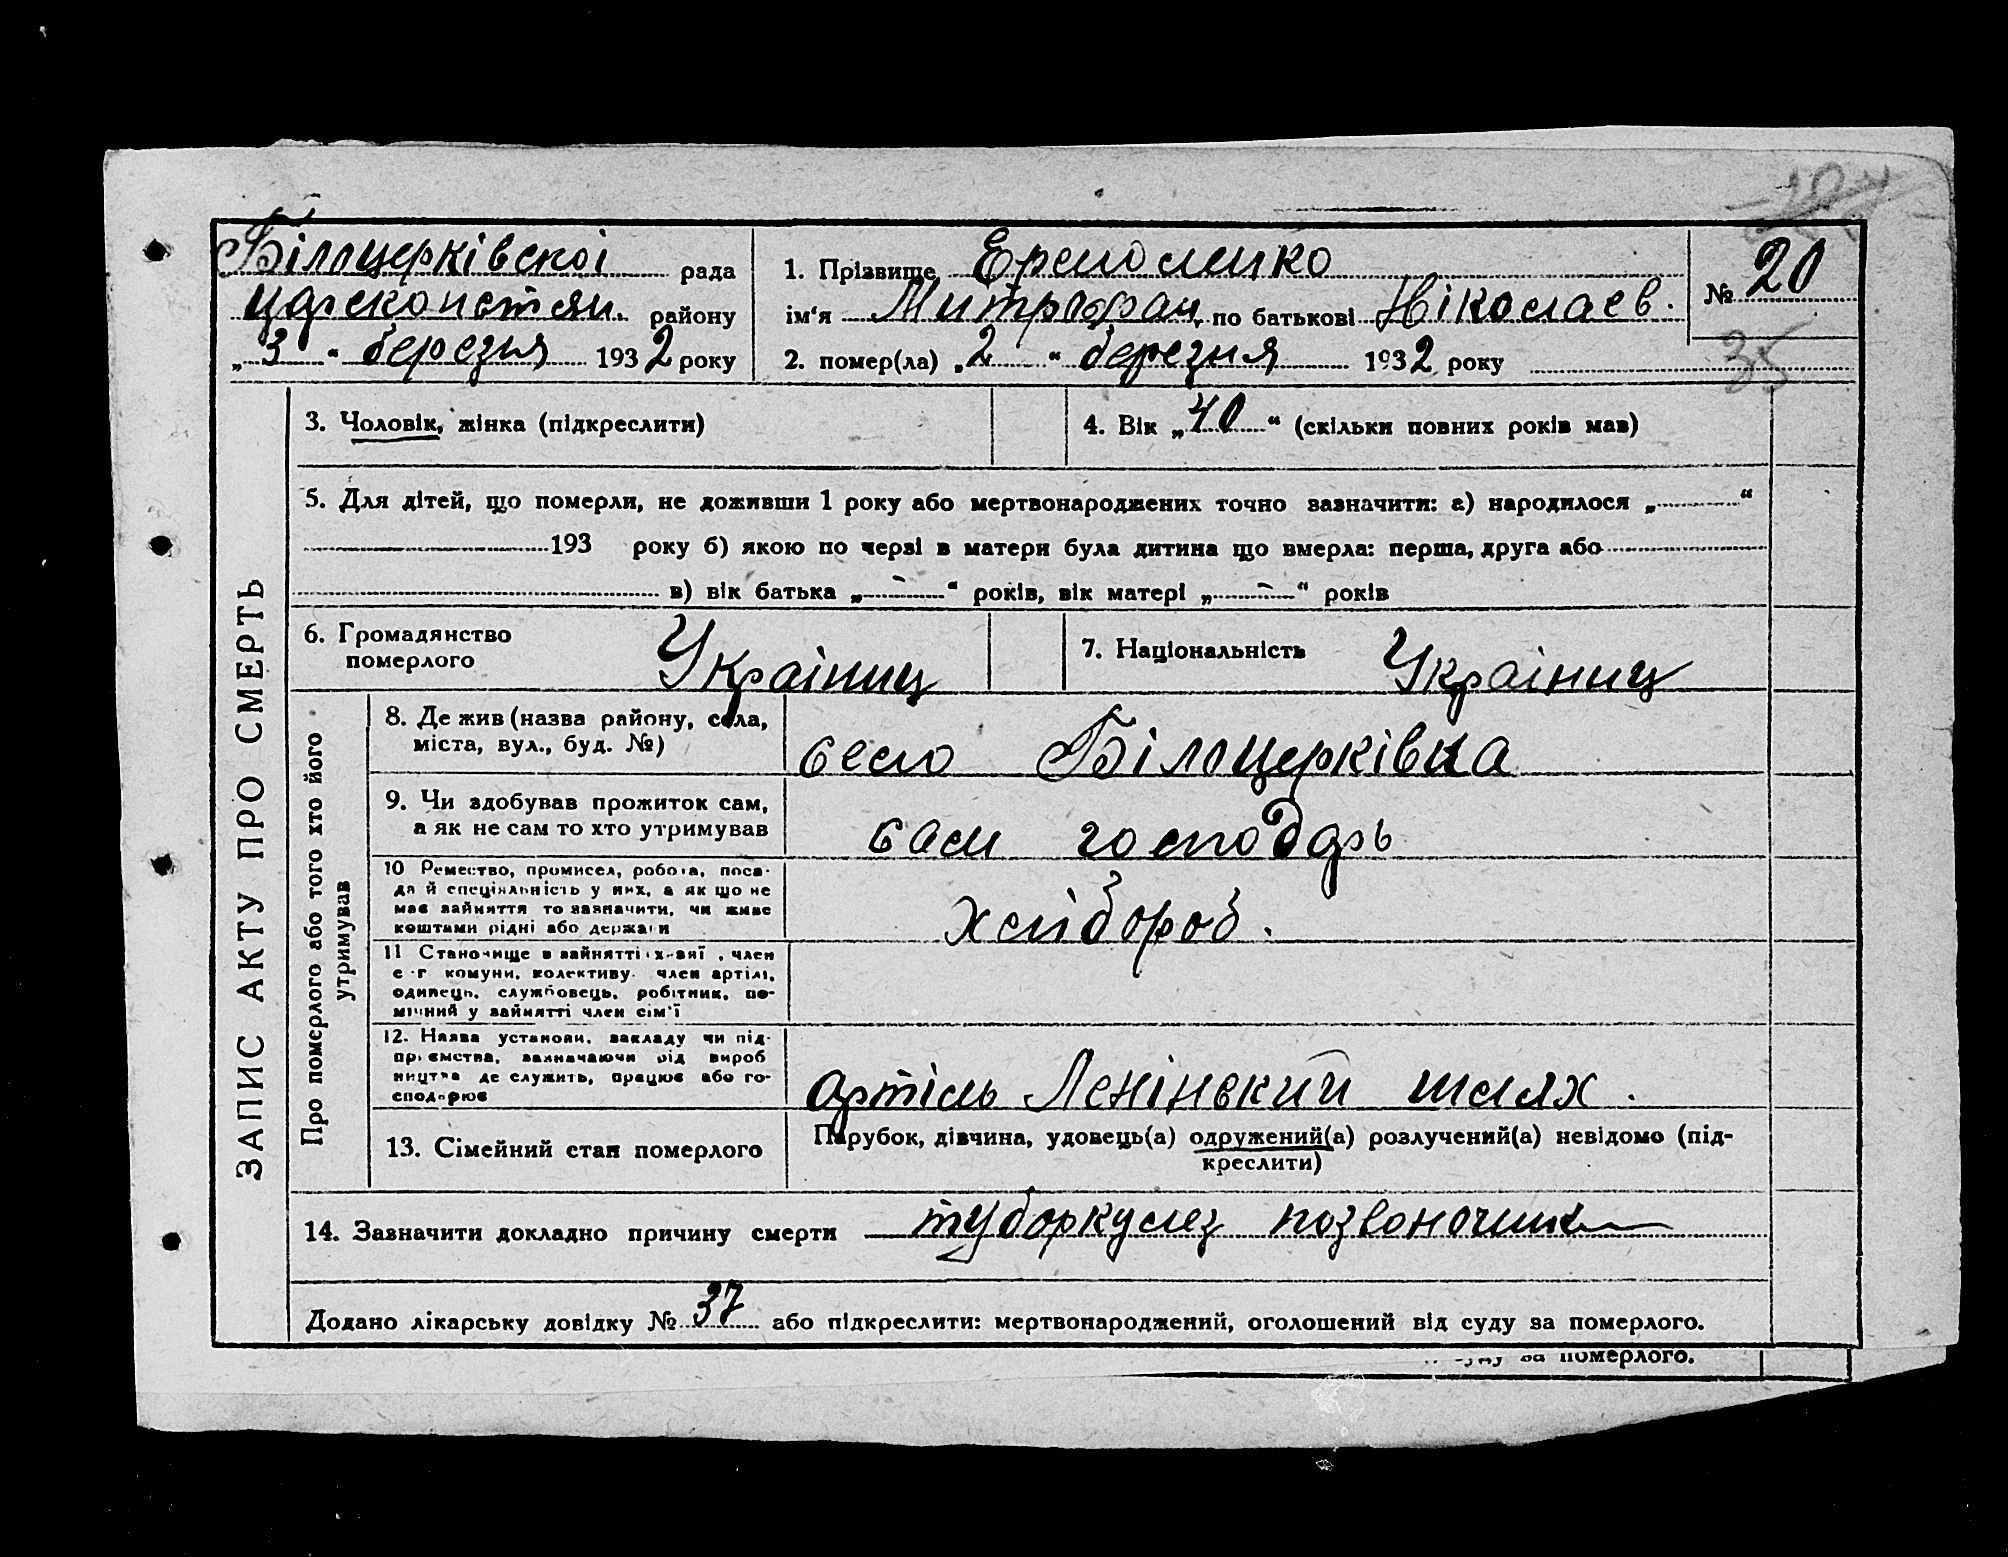 Білоцерківскоі рада
району
„3“ березня 1932 року
1. Прізвище Ермоленко
ім'я Митрофан по батькові Ніколаєв.
2. помер(ла) „2“ березня 1932 року
№ 20
35
ЗАПИС АКТУ ПРО СМЕРТЬ
3. Чоловік, жінка (підкреслити)
4. Вік „40“ (скільки повних років мав)
5. Для дітей, що померли, не доживши 1 року або мертвонароджених точно зазначити: а) народилося „ “
193 року б) якою по черзі в матери була дитина що вмерла: перша, друга або
в) вік батька „-“ років, вік матері „-“ років
6. Громадянство
померлого
Украіниц
7. Національність Украіниц
Про померлого або того хто його
утримував
8. Де жив (назва району, села,
міста, вул., буд. №)
село Білоцерківка
9. Чи здобував прожиток сам,
а як не сам то хто утримував
сам господарь
10 Ремество, промисел, робота, поса-
да й спеціяльність у них, а як що не
має зайняття то зазначити, чи живе
коштами рідні або держави
хлібороб.
11 Становище в зайнятті член
с-г комуни, колективу, член артілі,
одинець, службовець, робітник, по-
мічний у зайнятті член сім'ї
12. Назва установи, закладу чи під-
приємства, зазначаючи рід вироб
ництва де служить, працює або го-
сподарює
артіль Ленінський шлях.
13. Сімейний стан померлого
Парубок, дівчина, удовець(а) одружений(а) розлучений(а) невідомо (під-
креслити)
14. Зазначити докладно причину смерти туборкулез позвоночника
Додано лікарську довідку № 37 або підкреслити: мертвонароджений, оголошений від суду за померлого.
суду за померлого.